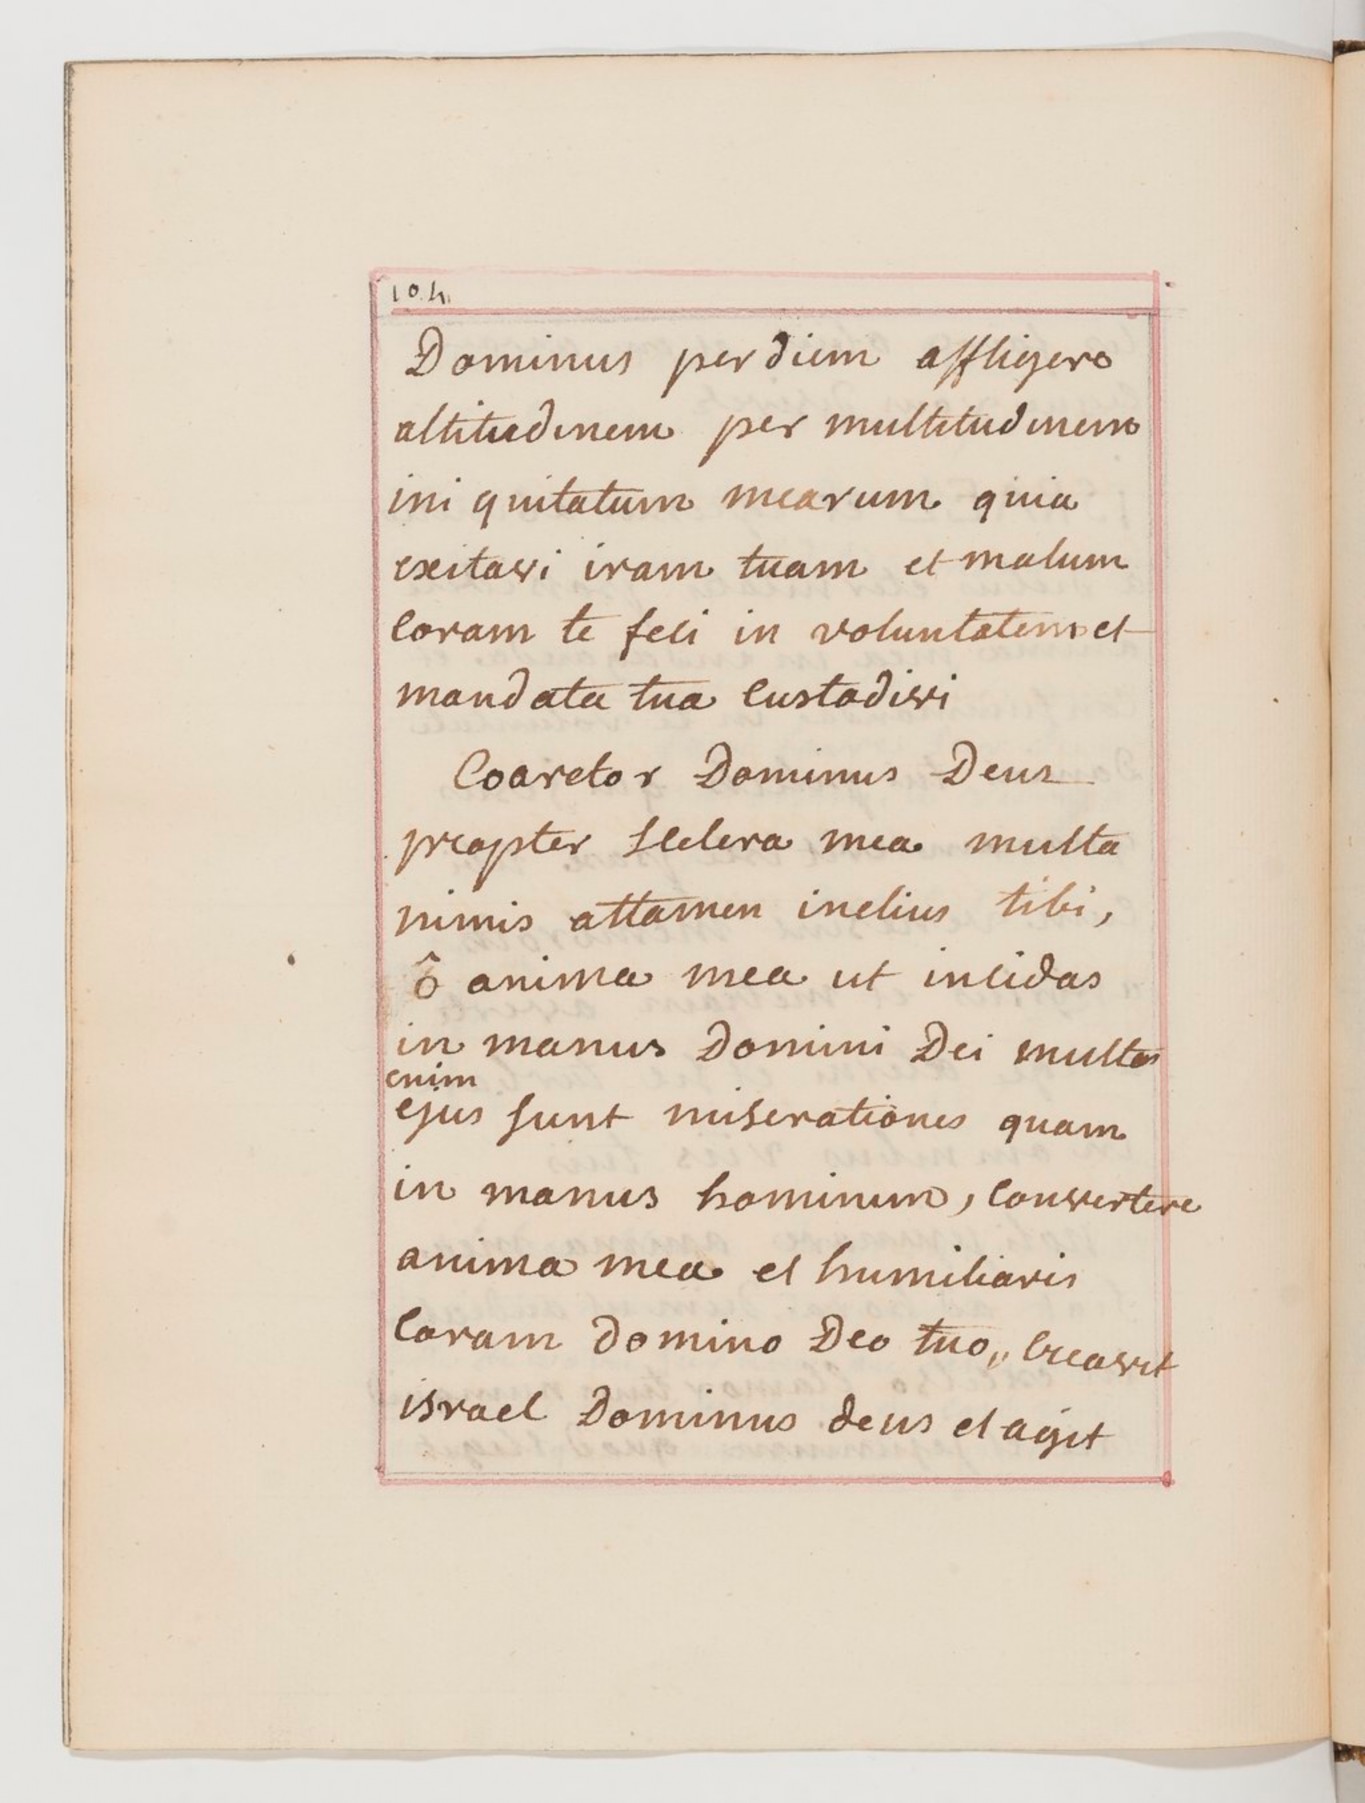 104
Dominus per diem affligero
altitudinem per multitudinem
ini quitatum mearum quia
exitavi iram tuam et malum
Coram te feci in voluntatem et
mandata tua Custodivi
Coarctor Dominus Deus
propter scelera mea multa
nimis attamen melius tibi,
ô anima mea ut incidas
in manus Domini Dei multas
enim
ejus sunt miserationes quam
in manus hominum, Convertere
anima mea et humiliaris
Coram domino Deo tuo,, Creavit
israel Dominus deus et agit